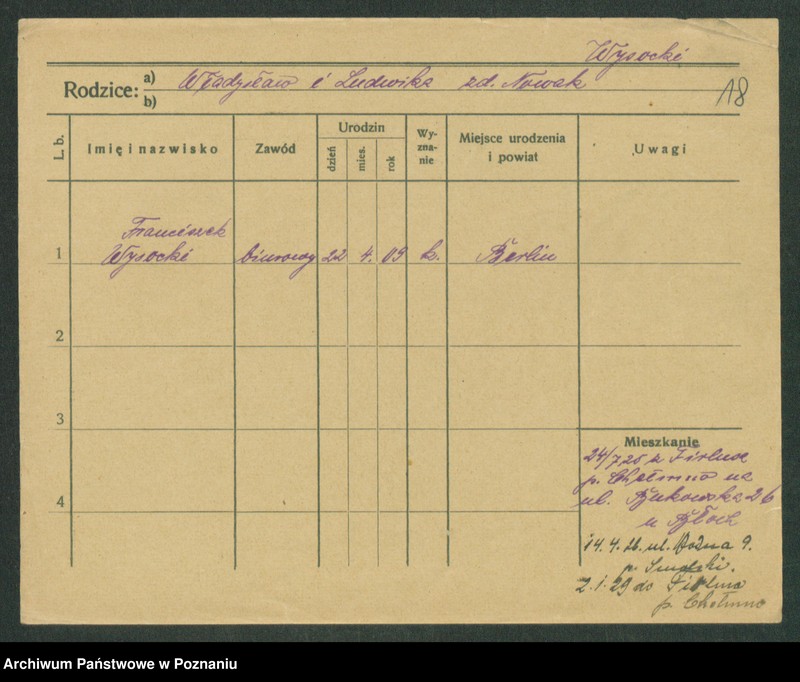 Wysocki
Rodzice: a) Władysław i Ludwika zd. Nowak
b)
18
L. b.
Imię i nazwisko
Zawód
Urodzin
dzień
mies.
rok
Wy-
zna-
nie
Miejsce urodzenia
i powiat
Uwagi
Franciszek
1 Wysocki biurowy 22 4. 09 k. Berlin
2
3
4
Mieszkanie
24/7 25 z
p. Chełmno na
ul. Bukowska 26
u
14. 4. 26. ul. 9.
p.
2. 1. 29 do
p. Chełmno
Archiwum Państwowe w Poznaniu